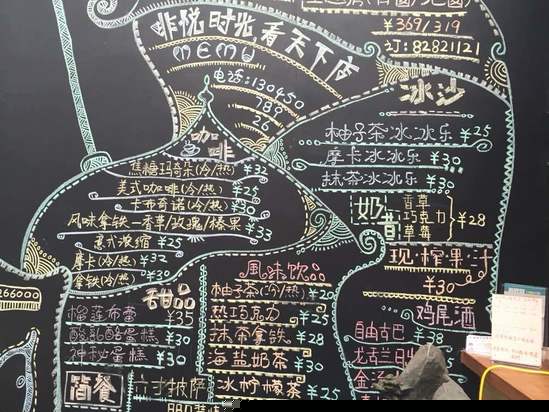 ¥369/319
订: 82821121
啡悦时光看天下店
MEMU
电话: 130450
789
26
咖啡
焦糖玛奇朵(冷/热) ¥32
美式咖啡(冷/热) ¥25
卡布奇诺(冷/热) ¥30
风味拿铁-香草/玫瑰/榛果 ¥33
意式浓缩 ¥25
摩卡(冷/热) ¥32
拿铁(冷/热) ¥30
冰沙
柚子茶冰冰乐 ¥25
摩卡冰冰乐 ¥30
抹茶冰冰乐 ¥30
奶昔
香草
巧克力 ¥28
草莓
现·榨·果·汁
¥30
鸡尾酒
自由古巴 ¥38
龙舌兰日
金汤
266000
甜品
榴莲布蕾 ¥35
酸乳酪蛋糕 ¥30
神秘蛋糕 ¥30
简餐
六寸披萨
風味饮品
柚子茶(冷/热) ¥20
热巧克力 ¥25
抹茶拿铁 ¥28
海盐奶茶 ¥30
冰柠檬茶 ¥25